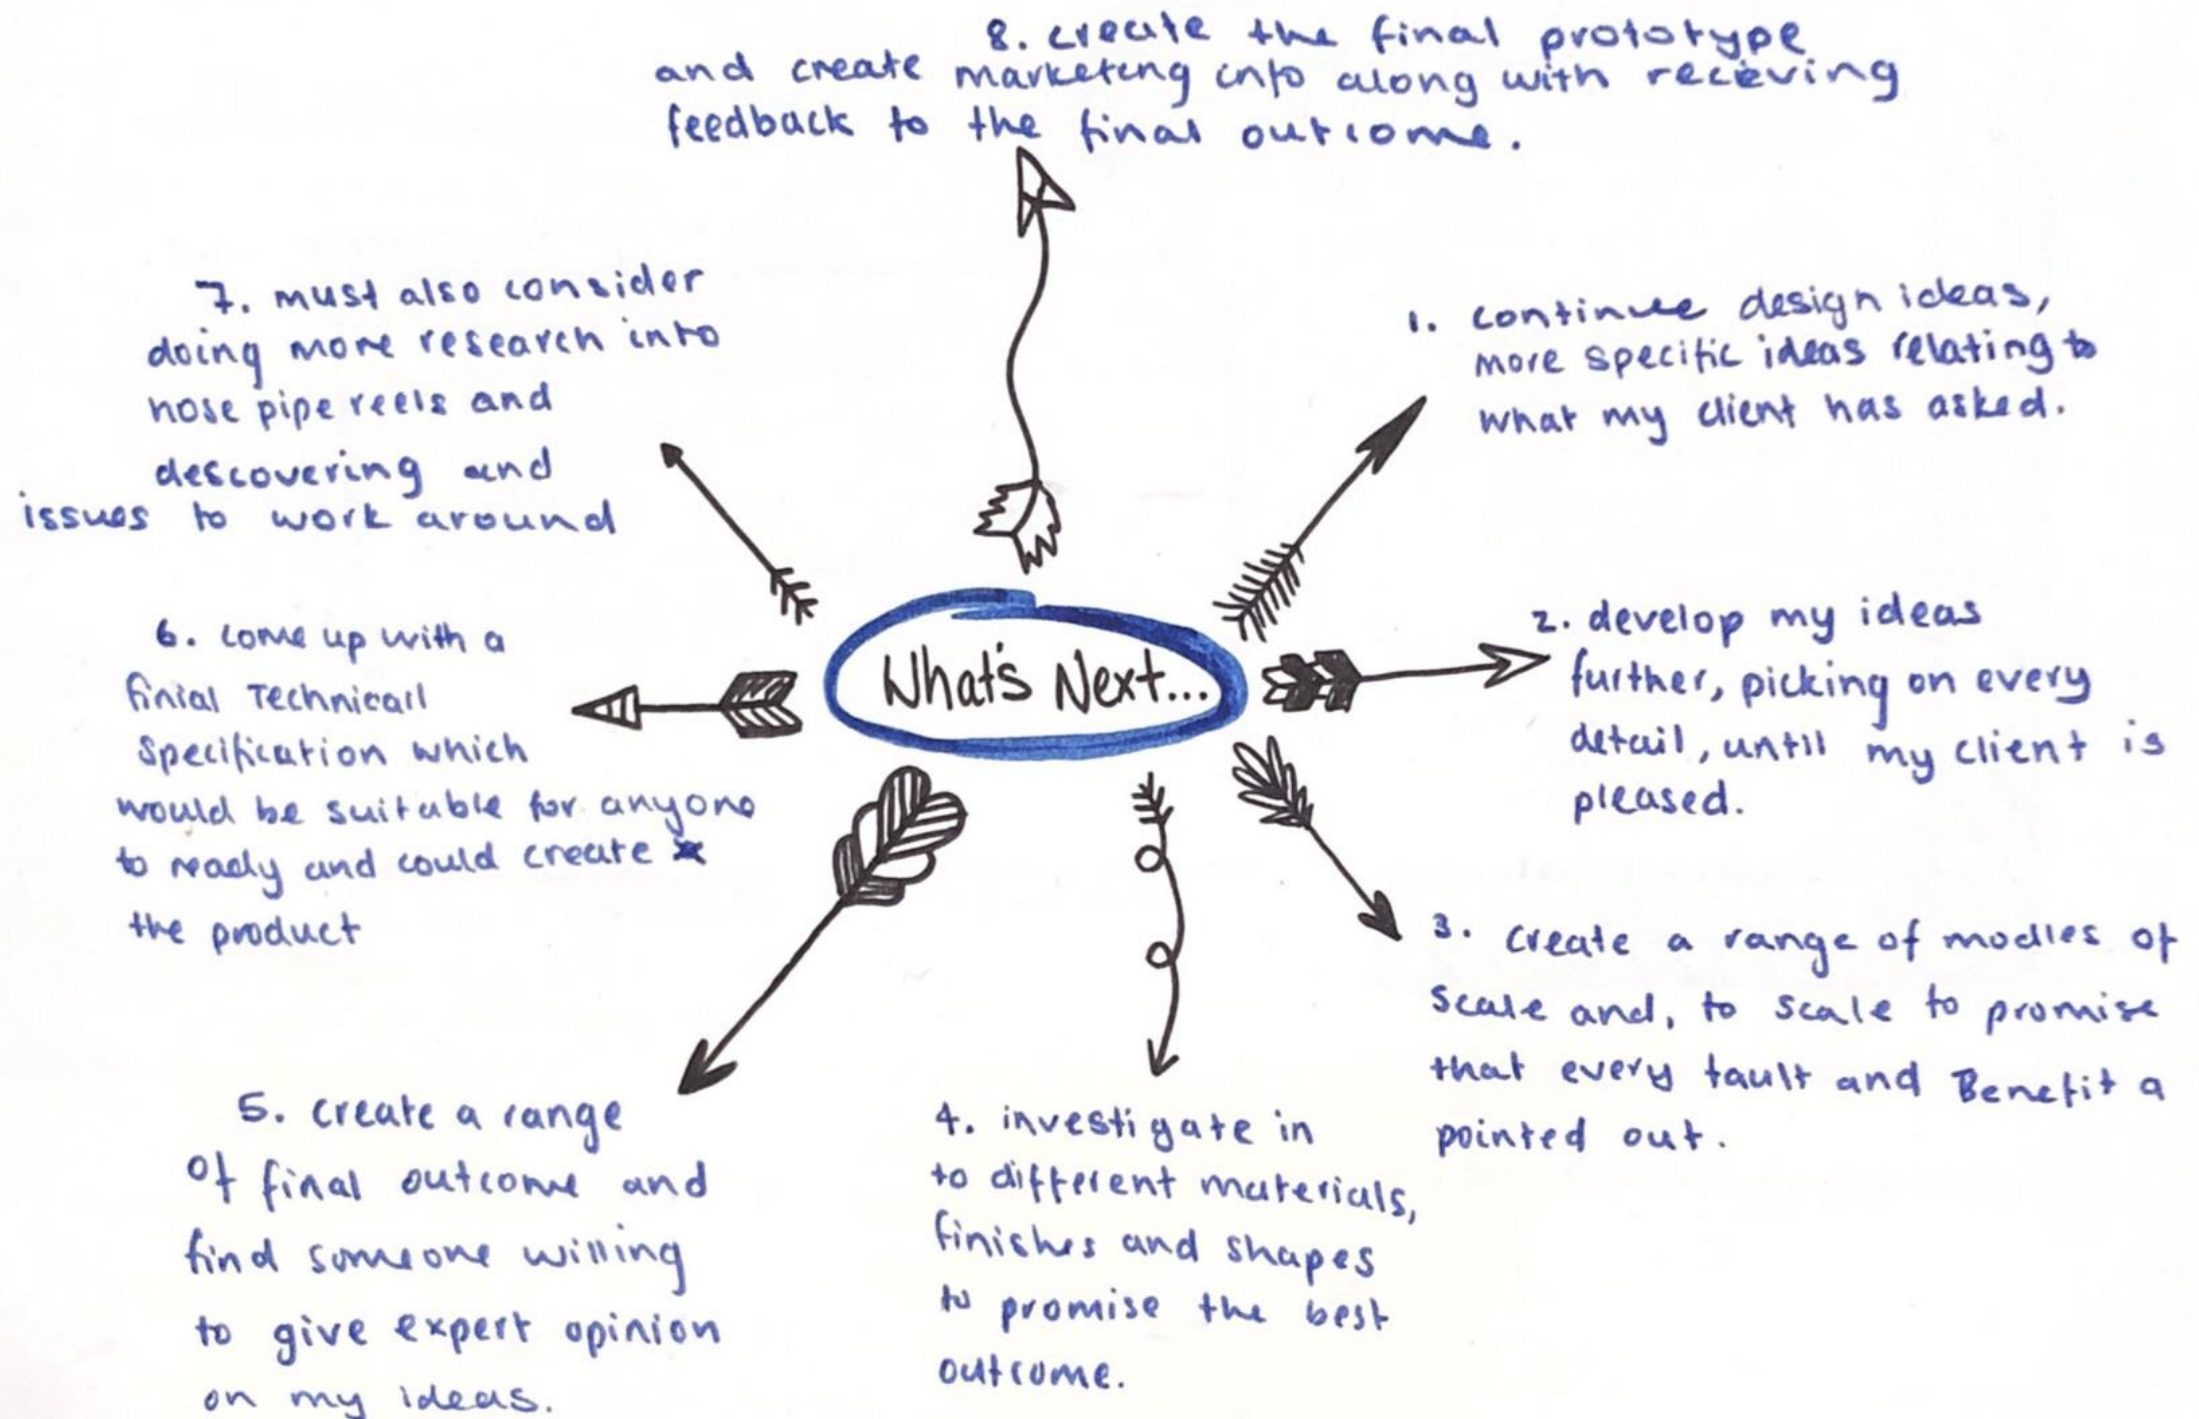 What's Next...
1. continue design ideas,
more specific ideas relating to
what my client has asked.
2. develop my ideas
further, picking on every
detail, until my client is
pleased.
3. create a range of modles of
scale and, to scale to promise
that every fault and Benefit a
pointed out.
4. investigate in
to different materials,
finishes and shapes
to promise the best
outcome.
5. create a range
of final outcome and
find someone willing
to give expert opinion
on my ideas.
6. come up with a
finial Technicall
specification which
would be suitable for anyone
to ready and could create
the product
7. must also consider
doing more research into
hose pipe reels and
descovering and
issues to work around
8. create the final prototype
and create marketeng info along with recieving
feedback to the final outcome.